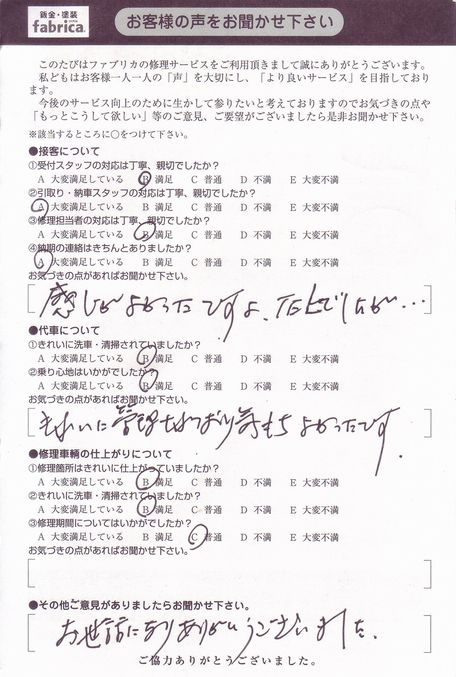 鈑金・塗装
fabrica.
お客様の声をお聞かせ下さい
このたびはファブリカの修理サービスをご利用頂きまして誠にありがとうございます。
私どもはお客様一人一人の「声」を大切にし、「より良いサービス」を目指しており
ます。
今後のサービス向上のために生かして参りたいと考えておりますのでお気づきの点や
「もっとこうして欲しい」等のご意見、ご要望がございましたら是非お聞かせ下さい。
※該当するところに○をつけて下さい。
●接客について
①受付スタッフの対応は丁寧、親切でしたか?
A 大変満足している B 満足 C 普通 D 不満 E 大変不満
②引取り・納車スタッフの対応は丁寧、親切でしたか?
A 大変満足している B 満足 C 普通 D 不満 E 大変不満
③修理担当者の対応は丁寧、親切でしたか?
A 大変満足している B 満足 C 普通 D 不満 E 大変不満
④納期の連絡はきちんとありましたか?
A 大変満足している B 満足 C 普通 D 不満 E 大変不満
お気づきの点があればお聞かせ下さい。
感じがよかったですよ、
●代車について
①きれいに洗車・清掃されていましたか?
A 大変満足している B 満足 C 普通 D 不満 E 大変不満
②乗り心地はいかがでしたか?
A 大変満足している B 満足 C 普通 D 不満 E 大変不満
お気づきの点があればお聞かせ下さい。
きれいに管理されており気もちよかったです.
●修理車輌の仕上がりについて
①修理箇所はきれいに仕上がっていましたか?
A 大変満足している B 満足 C 普通 D 不満 E 大変不満
②きれいに洗車・清掃されていましたか?
A 大変満足している B 満足 C 普通 D 不満 E 大変不満
③修理期間についてはいかがでしたか?
A 大変満足している B 満足 C 普通 D 不満 E 大変不満
お気づきの点があればお聞かせ下さい。
●その他ご意見がありましたらお聞かせ下さい。
お世話になりありがとうございました.
ご協力ありがとうございました。